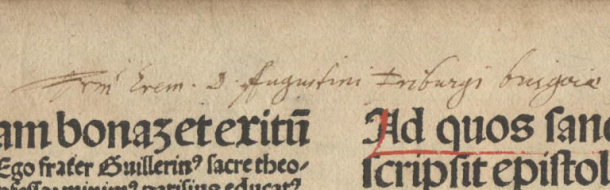 Frm Erem. D. Augustini Friburgi brisgoiæ
am bonaꝫ et exitū
Ego frater Guillerinꝰ sacre theo-
Ad quos sanc
scripsit epistol